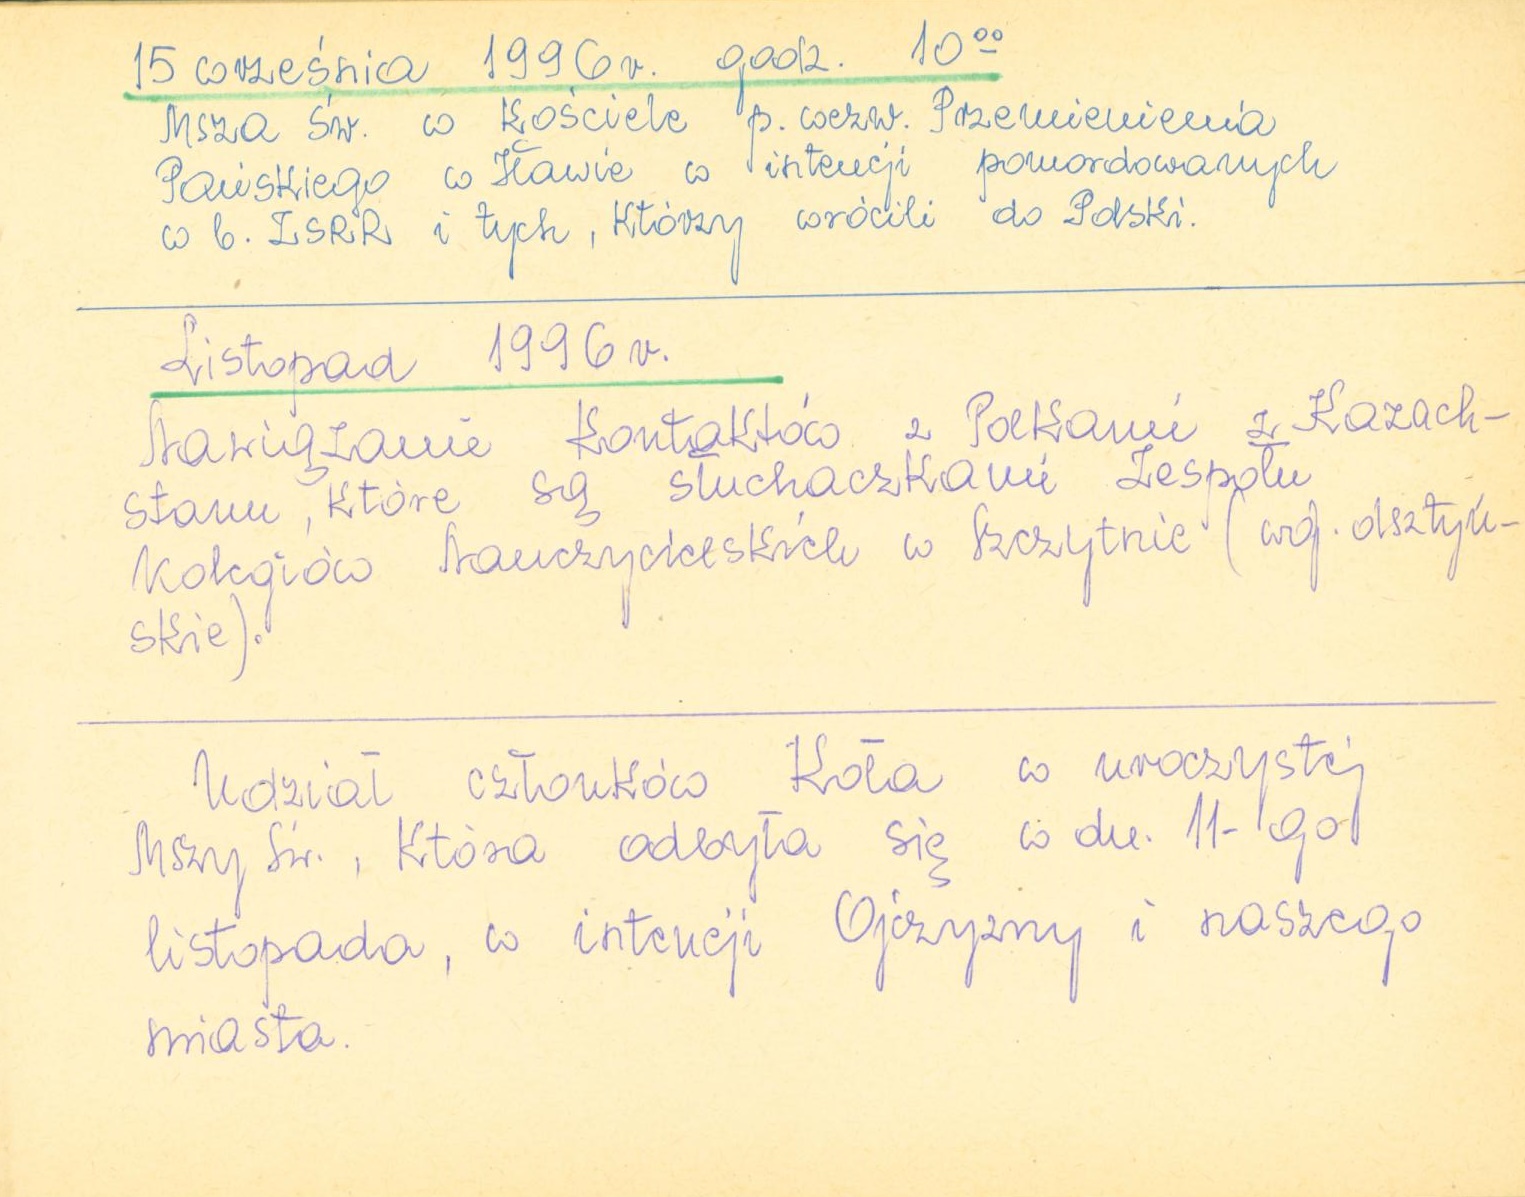 15 września 1996 r. godz. 10⁰⁰
Msza Św. w Kościele p. wezw. Przemienienia
Pańskiego w Iławie w intencji pomordowanych
w b. ZSRR i tych, którzy wrócili do Polski.
Listopad 1996 r.
Nawiązanie kontaktów z Polkami z Kazach-
stanu, które są słuchaczkami Zespołu
Kolegiów Nauczycielskich w Szczytnie (woj. olsztyń-
skie).
Udział członków Koła w uroczystej
Mszy Św., która odbyła się w dn. 11-go
listopada, w intencji Ojczyzny i naszego
miasta.